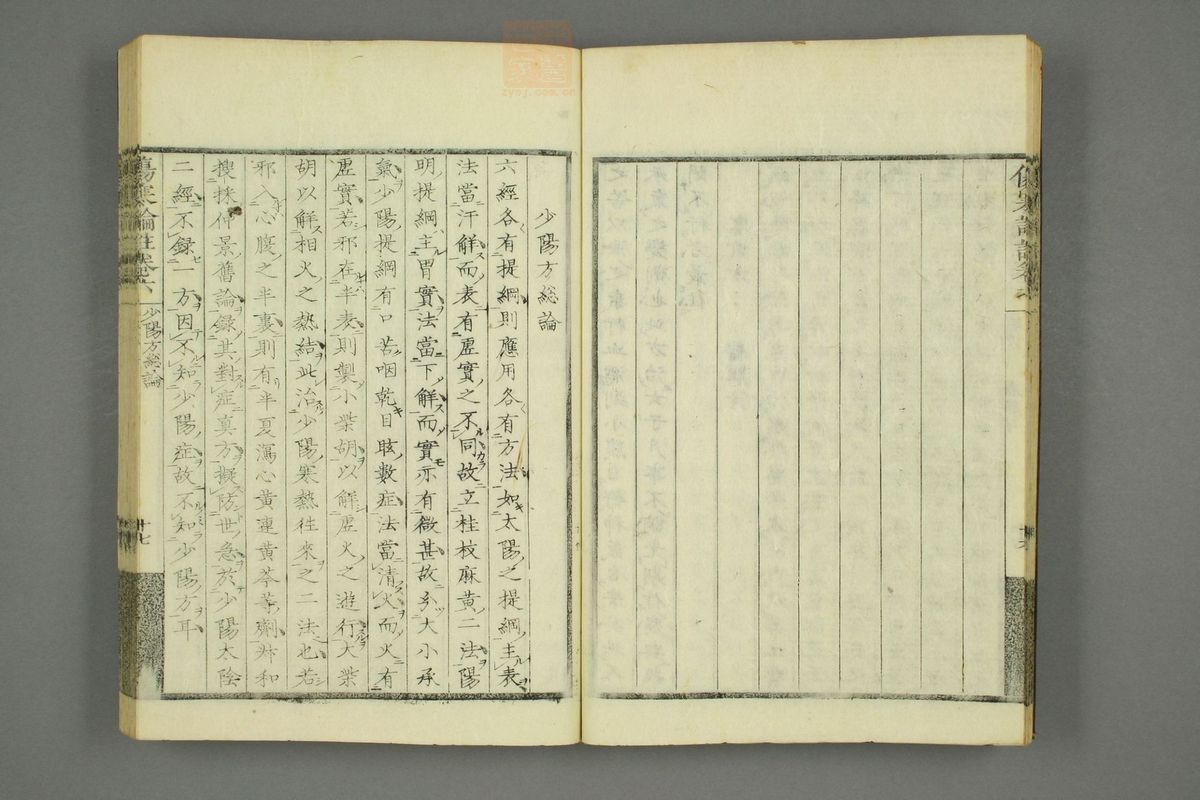 少陽方総論
六經各有提綱則應用各有方法如太陽之提綱主表
法當汗解而表有虚實之不同故立桂枝麻黄二法陽
明提綱主胃實法當下解而實亦有微甚故分大小承
氣少陽提綱有口苦咽乾目眩數症法當清火而火有
虚實若邪在半表則製小柴胡以解虚火之遊行大柴
胡以解相火之熱結此治少陽寒熱往來之二法也若
邪入心腹之半裏則有半夏瀉心黄連黄芩等劑并和
搜採仲景舊論録其對症真方擬防世急於少陽太陰
二經不録一方因不知少陽症故不知少陽方耳
傷寒論註卷六
少陽方総論
十七
zysj.com.cn